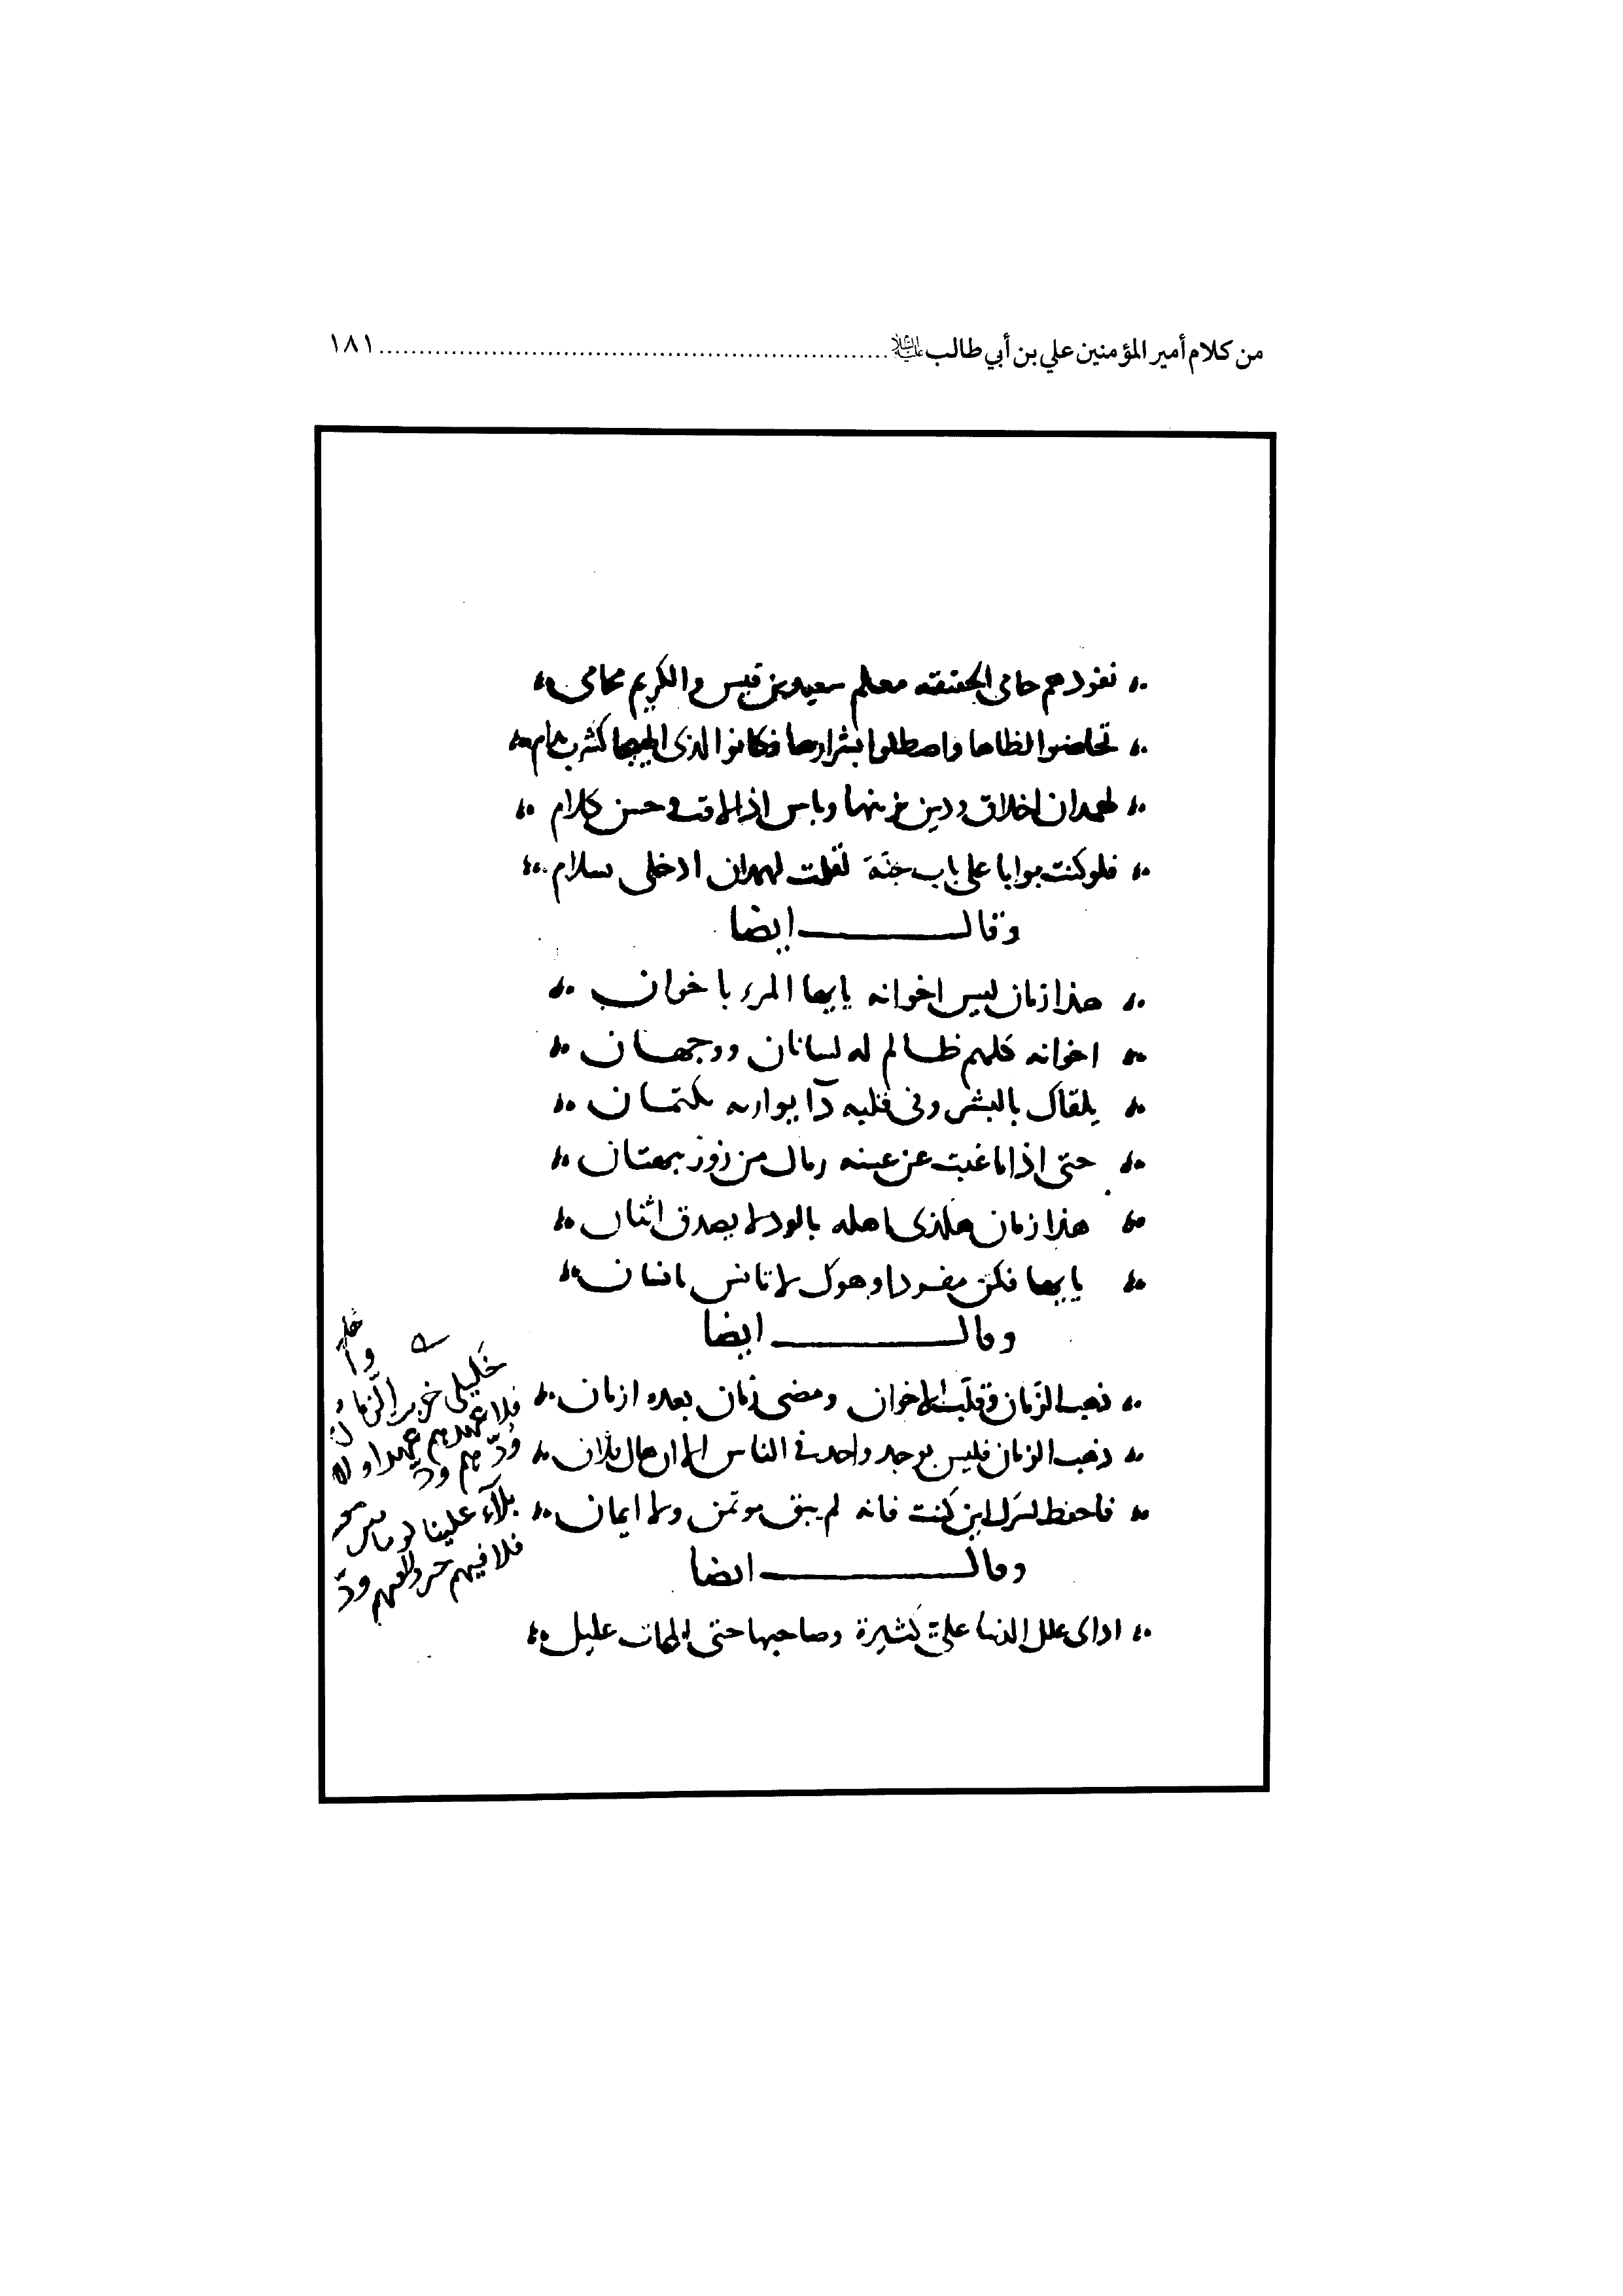 من كلام أمير المؤمنين علي بن أبي طالب عليه السلام ........ ١٨١
نقودهم حامى الحقيقه معلم سعيد بن قيس والكريم محامى
تخاضوا لظاها واصطلوا بشرارها فكانوا لذى الهيجا كشرب مدام
لهمدان اخلاق ودين يزينها وباس اذا لاقت وحسن كلام
فلو كنت بوابا على باب جنة لقلت لهمدان ادخلى بسلام
وقال ايضا
هذا زمان ليس اخوانه يايها المرء باخوان
اخوانه كلهم ظالم له لسانان ووجهان
يلقاك بالبشر وفى قلبه دآ يواريه بكتمان
حتى اذا ما غبت عن عينه رماك من زور ببهتان
هذا زمان هكذى اهله بالود لا يصدق اثنان
يايها فكن مفردا وهوك لا تانس بانسان
وقال ايضا
ذهب الزمان وقلت الاخوان ومضى زمان بعده ازمان
ذهب الزمان فليس يوجد واحد فى الناس الا ان قال فلان
فاحفظ لسرك اين كنت فانه لم يبق موتمن ولا ايمان
وقال ايضا
ارى علل الدنيا على كثيرة وصاحبها حتى الممات عليل
خليلى خربت الزمان
فلا عهدهم عهد اولا
ودهم ود
بلآء علينا
فلا فيهم حر ولا لهم ود